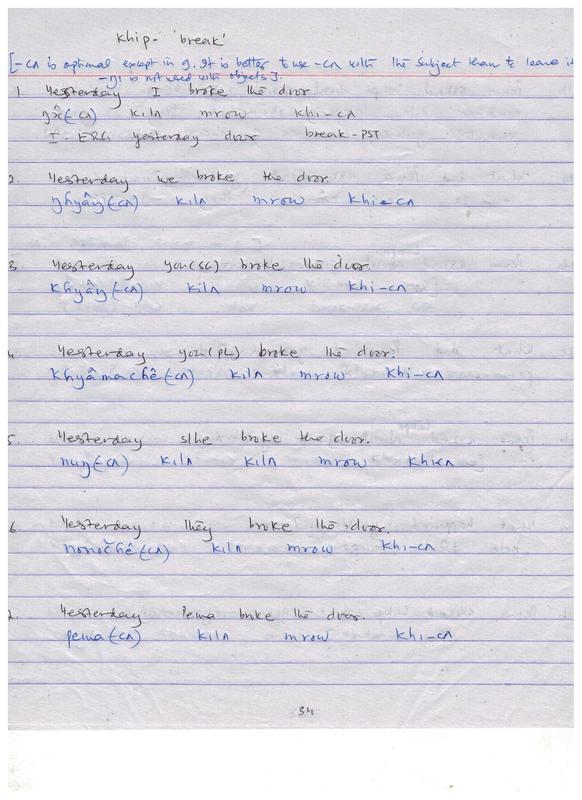 khip- 'break'
[-cʌ is optional except in 9. It is better to use -cʌ with the subject than to leave it
-ŋi is not used with objects].
1 Yesterday I broke the door.
kilʌ mrow khi-cʌ
I-ERG yesterday door break-PST
2. Yesterday we broke the door.
kilʌ mrow khi-cʌ
3. Yesterday you(SG) broke the door.
khyâŋ(-cʌ) kilʌ mrow khi-cʌ
4. Yesterday you(PL) broke the door.
khyâmachê(-cʌ) kilʌ mrow khi-cʌ
5. Yesterday s/he broke the door.
kilʌ kilʌ mrow
6 Yesterday they broke the door.
kilʌ mrow khi-cʌ
7. Yesterday Pema broke the door.
pema(-cʌ) kilʌ mrow khi-cʌ
34